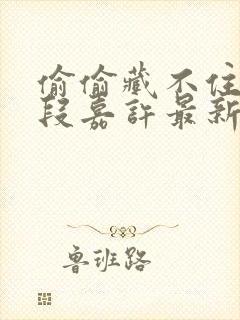 偷偷藏不住
段嘉許最新
魯班路